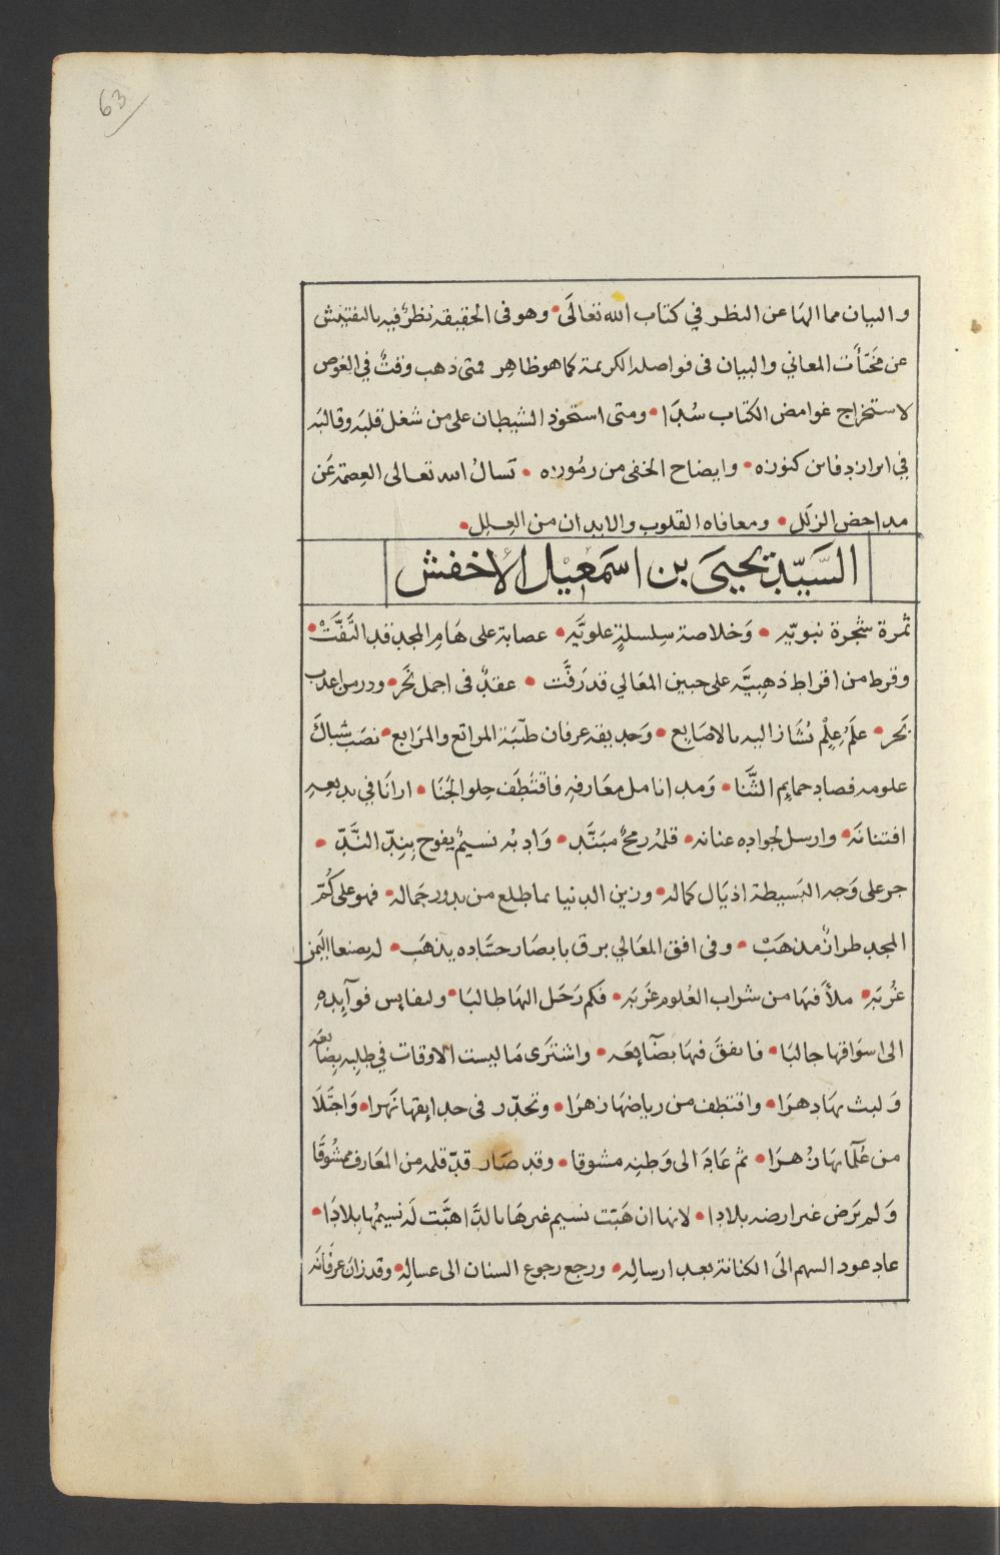 63
والبيان مما الها عن النظر في كتاب الله تعالى • وهو فى الحقيقه نظرٌ فيه بالتفتيش
عن مخبّأت المعاني والبيان فى فواصله الكريمة كما هو ظاهر فمتى ذهب وقتٌ في الغوص
لاستخراج غوامض الكتاب سُدًا • ومتى استحوذ الشيطان على من شغل قلبَه وقالبَه
في ابراز دفاين كنوزه • وايضاح الخفى من رموزه • نسالُ الله تعالى العِصمَة عَن
مداحض الزلَل • ومعافاه القلوب والابدان من العِلل •
السَّيّد يحيىَ بن اسمَعيْل الأخفش
ثمرة شجرة نبويّه • وَخلاصة سِلسلةٍ علويَّه • عصابة على هَامِ المجد قد التَفَّتْ •
وقرط من اقراط ذهبيَّه على جبين المعَالي قد رَفَّت • عقدٌ فى اجمل نَحر • ودر من اعذب
بَحر • علَمُ عِلْم تُشَار اليه بالاصَابع • وَحديقة عرفان طيّبَة المراتع والمرَابع • نصَب شباكَ
علومه فصاد حمايم الثَّنا • وَمد انامل معَارفِهِ فاقتُطِف حلو الجَنَا • ارانَا في بديعِهِ
افتنانَه • وارسل لجواده عنانه • قلمُه رمحٌ مهَنَّد • وَادبُه نسيمٌ يفوح بِنِدّ النَّدّ •
جر على وَجه البَسيطة اذيَال كماله • وزين الدنيا بما طلع من بدور جَماله • فهو على كُمّ
المجد طرازٌ مذهَبْ • وفى افق المعَالي برق بابصَار حسَّاده يذهَب • له بصنعا اليَمن
غُربَه • ملأ فيهَا من شراب العُلوم غَربَه • فكم رَحَل اليهَا طالبَا • ولنفايس فوآيده
الى اسوَاقها جالبَا • فانفقَ فيهَا بضَآيِعَه • واشترَى مَا ليست الاوقات في طلبِه بضَآيعَه
وَلبث بهَا دهرَا • واقتطف من رياضهَا زهرَا • وتحدّر فى حدايقها نَهرا • وَاجتَلا
من عُلَمآيهَا زُهرَا • ثم عَادَ الى وَطنِه مشوقا • وقد صَار قدّ قلمه من المعَارف ممشُوقَا
وَلم يَرض غير ارضه بلادا • لانها ان هَبّت نسيم غيرهَا بالدَّا هبَّت لَه نسيمُها بلا دَا •
عاد عود السهم الَى الكنانة بعد ارسالِه • ورجع رجوع السنان الى عسالِه • وقد زانَ عرفَانَه